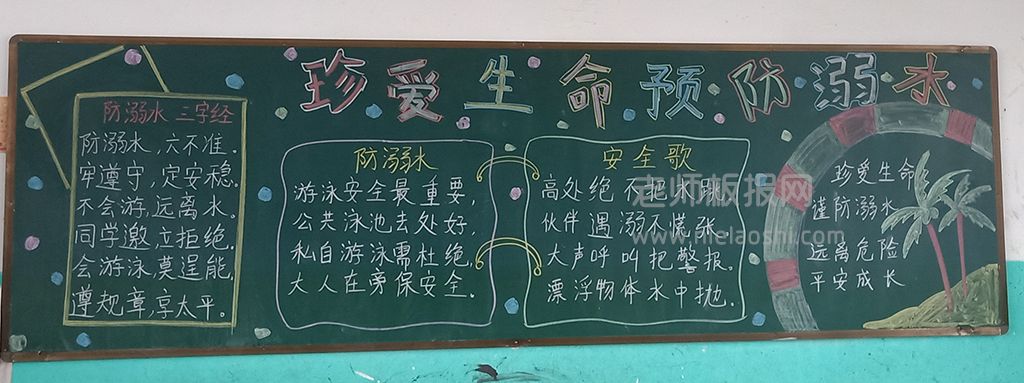 珍爱生命预防溺水
防溺水 三字经
防溺水，六不准。
牢遵守，定安稳。
不会游，远离水。
同学邀，立拒绝。
会游泳，莫逞能，
遵规章，享太平。
防溺水
游泳安全最重要，
公共泳池去处好，
私自游泳需杜绝，
大人在旁保安全。
安全歌
高处绝不把水跳，
伙伴遇溺不慌张，
大声呼叫把警报。
漂浮物体水中抛。
珍爱生命
谨防溺水
远离危险
平安成长
老师板报网
www.hielaoshi.com